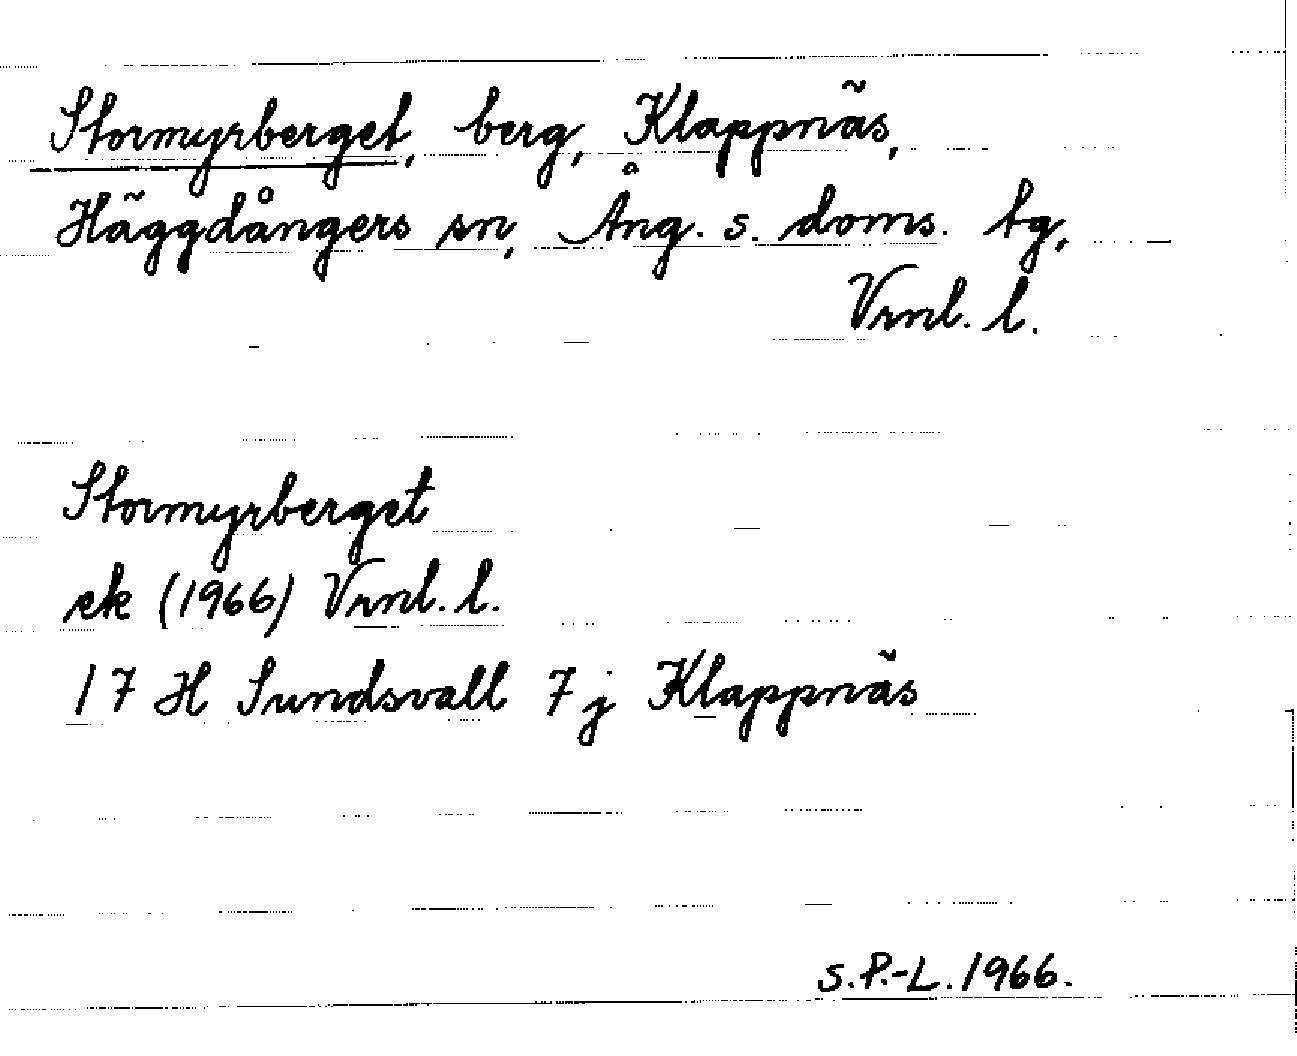 Stormyrberget, berg, Klappnäs,
Häggdångers sn, Ång. s. doms. tg,
Vrnl. l.
Stormyrberget
ek (1966) Vrnl. l.
17 H Sundsvall 7 j Klappnäs
S.P.-L. 1966.